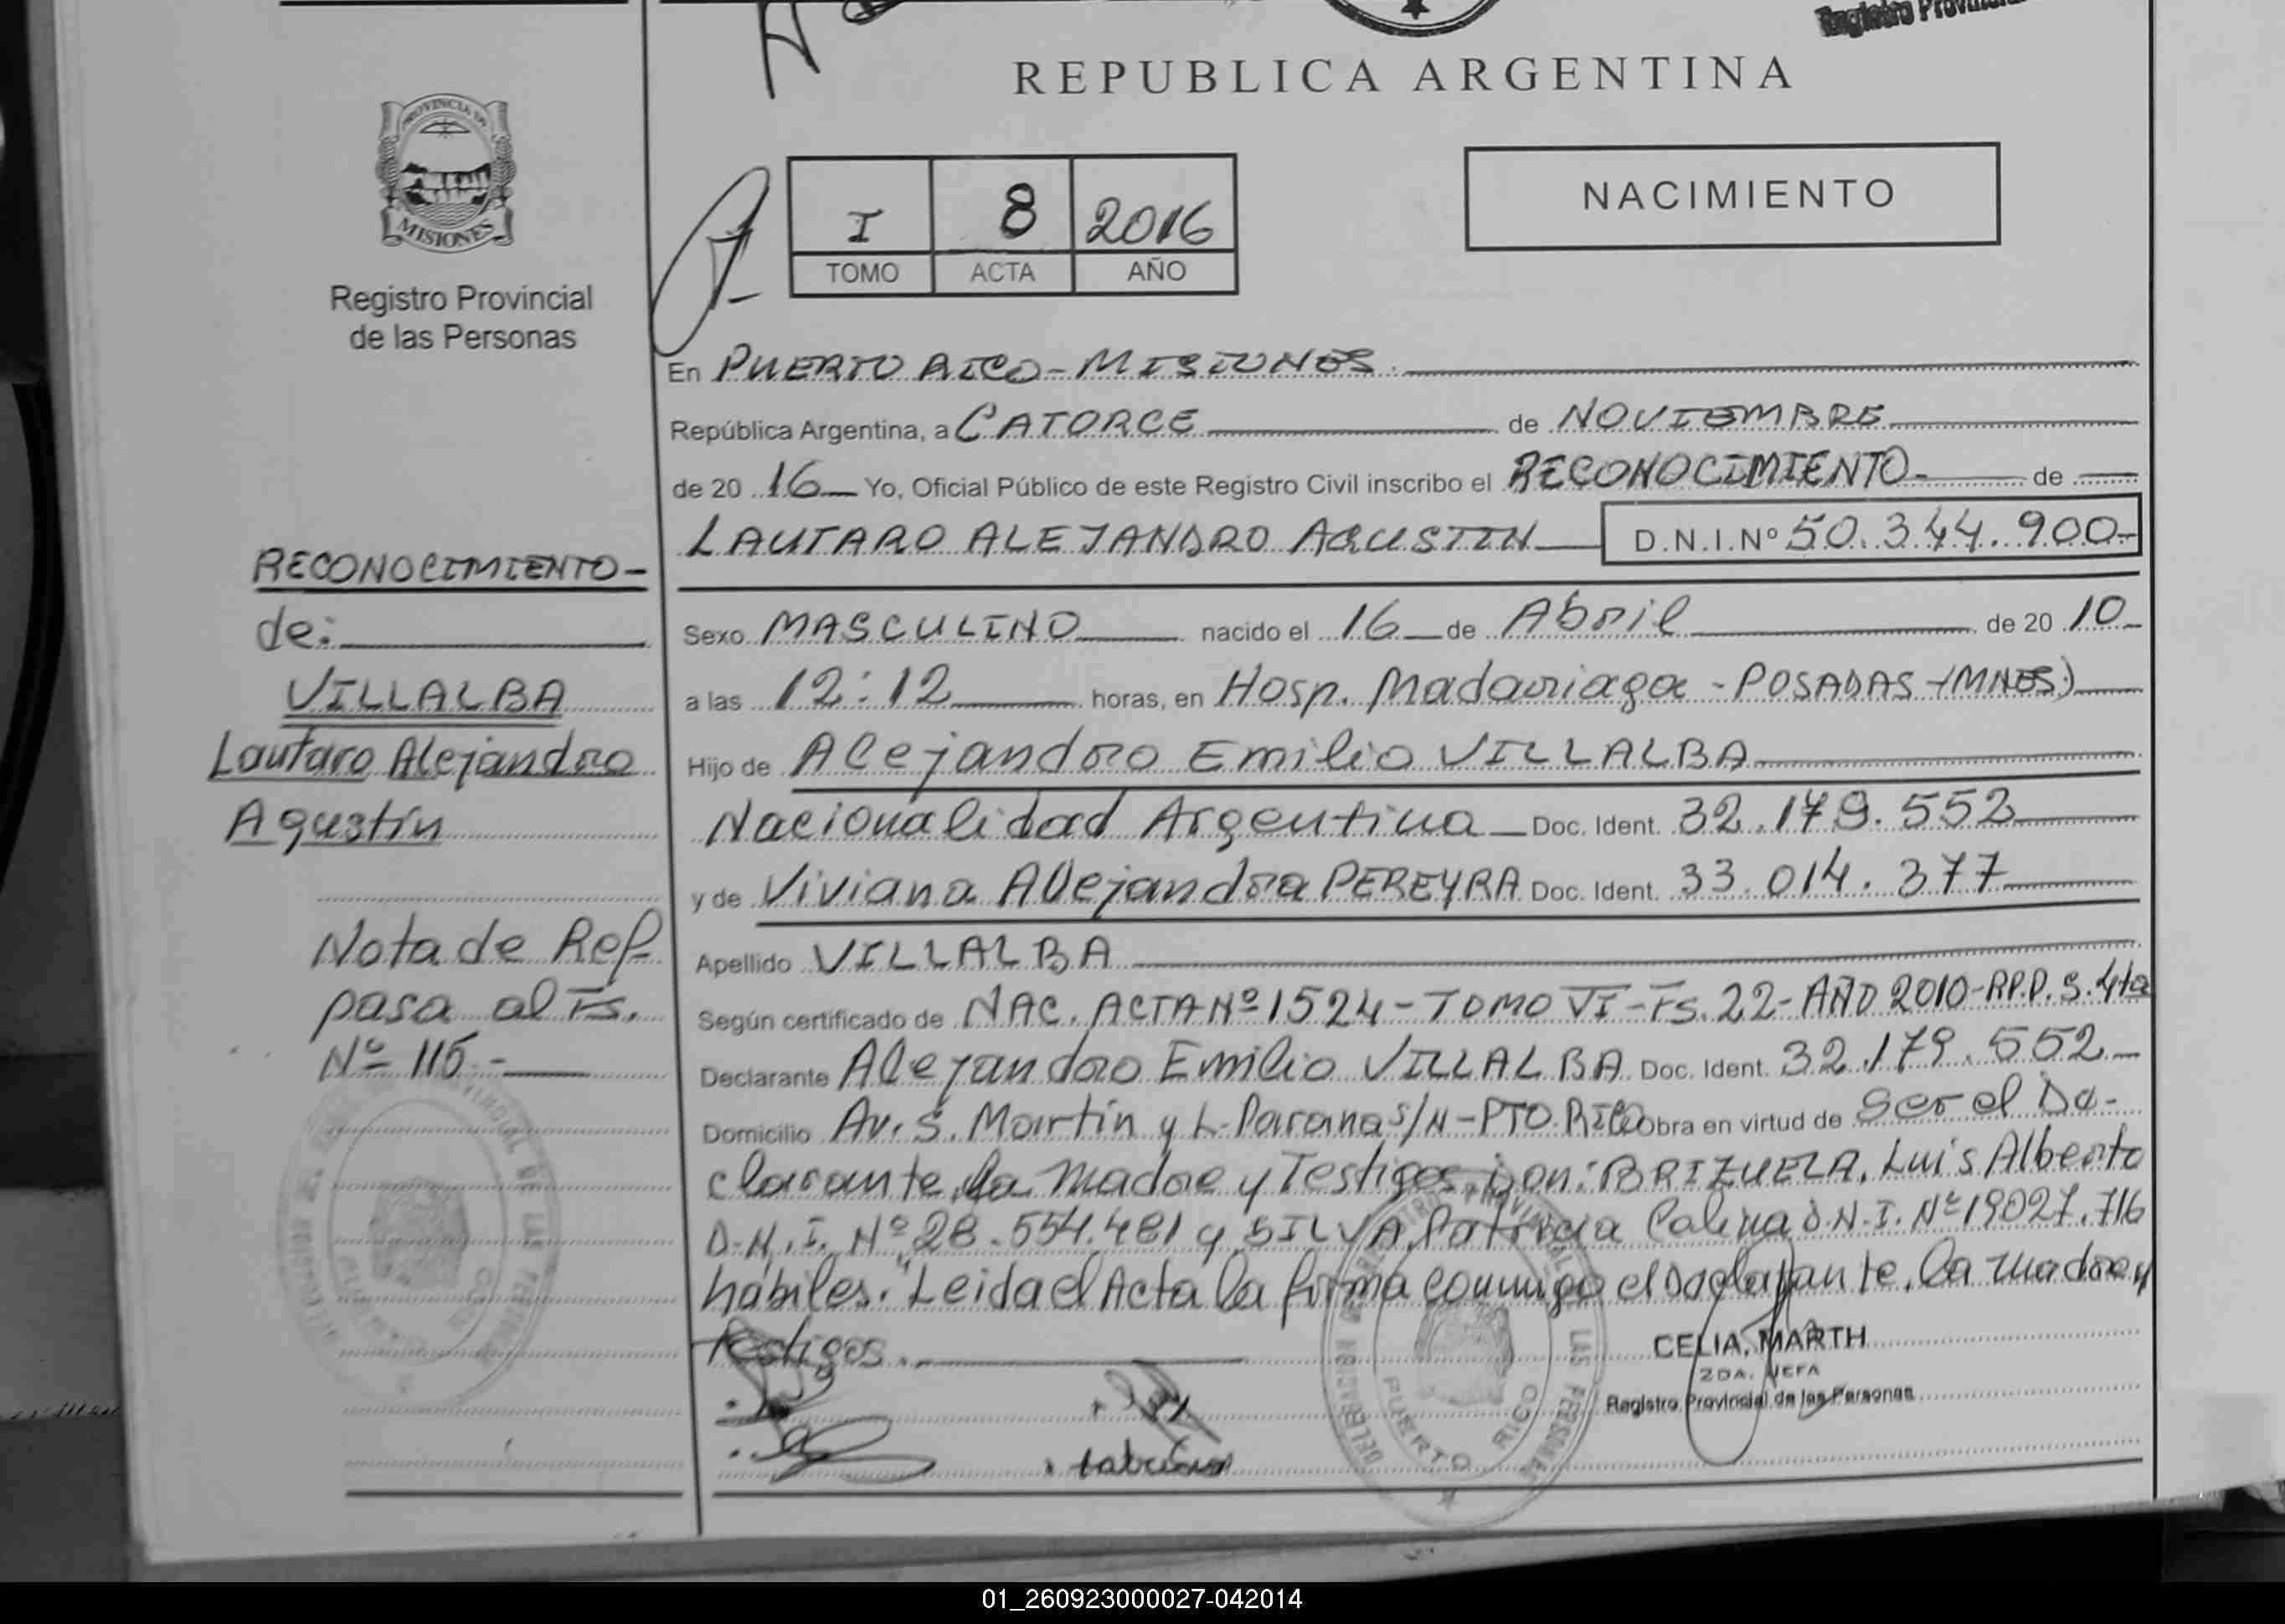 Registro Provincial
REPUBLICA ARGENTINA
PROVINCIA DE
MISIONES
Registro Provincial
de las Personas
I 8 2016
TOMO ACTA AÑO
NACIMIENTO
En PUERTO RICO-MISIONES.
República Argentina, a CATORCE de NOVIEMBRE
de 20 16 Yo, Oficial Público de este Registro Civil inscribo el RECONOCIMIENTO- de
LAUTARO ALEJANDRO AGUSTIN D.N.I.Nº 50.344.900-
Sexo MASCULINO nacido el 16 de Abril de 20 10
a las 12:12 horas, en Hosp. Madariaga - POSADAS -(MNES)
Hijo de Alejandro Emilio VILLALBA
Nacionalidad Argentina Doc. Ident. 32.179.552
y de Viviana Alejandra PEREYRA Doc. Ident. 33.014.377
Apellido VILLALBA
Según certificado de NAC. ACTA Nº 1524-TOMO VI-Fs.22-AÑO 2010-R.P.P. S.4ta
Declarante Alejandro Emilio VILLALBA Doc. Ident. 32.179.552
Domicilio Av. S. Martín y L. Parana S/N-PTO RICO Obra en virtud de Ser el De-
clarante, la madre y Testigos, Don: BRIZUELA, Luis Alberto
D.N.I. Nº 28.554.481 y SILVA, Patricia D.N.I. Nº 19027.716
hábiles. Leida el Acta la firma conmigo el Declarante, la madre y
testigos.
CELIA, MARTH
2DA. JEFA
Registro Provincial de las Personas
RECONOCIMIENTO-
de:
VILLALBA
Lautaro Alejandro
Agustín
Nota de Ref.
pasa al Fs.
Nº 115.-
PUERTO RICO
01_260923000027-042014